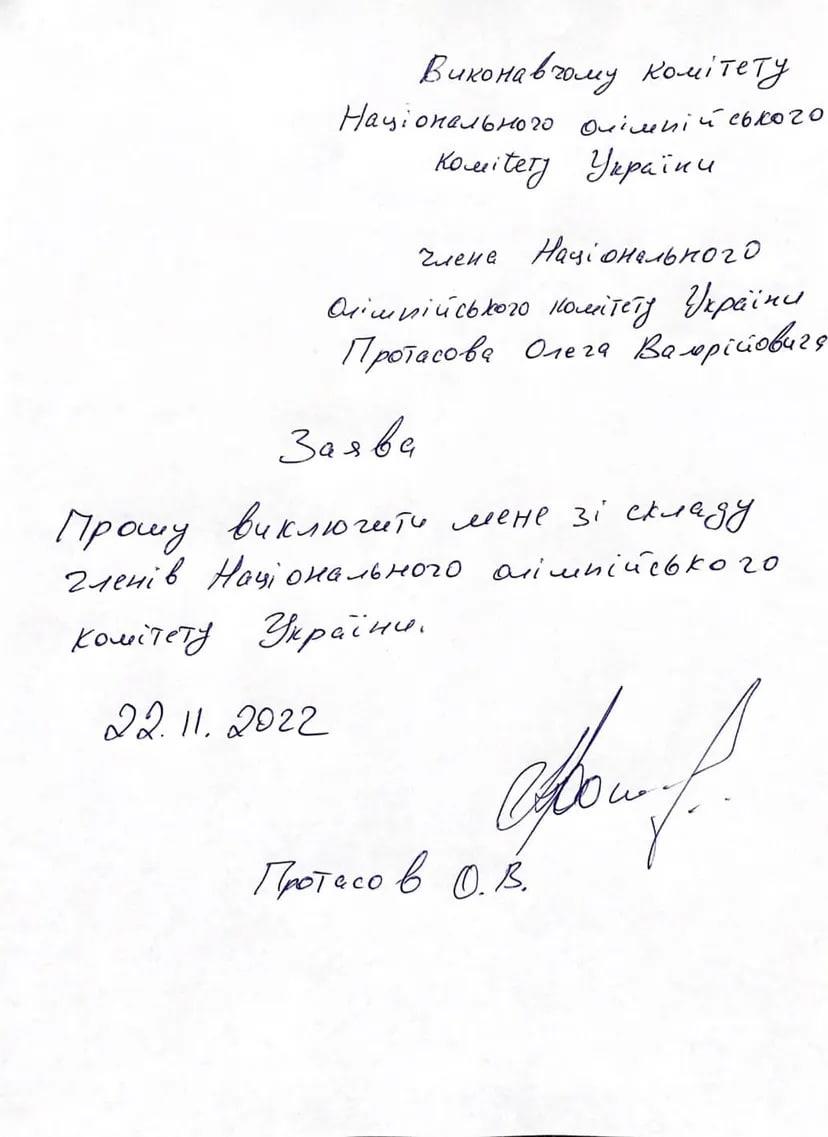 Виконавчому комітету
Національного олімпійського
комітету України
члена Національного
олімпійського комітету України
Протасова Олега Валерійовича
Заява
Прошу виключити мене зі складу
членів Національного олімпійського
комітету України.
22.11.2022
Протасов О.В.